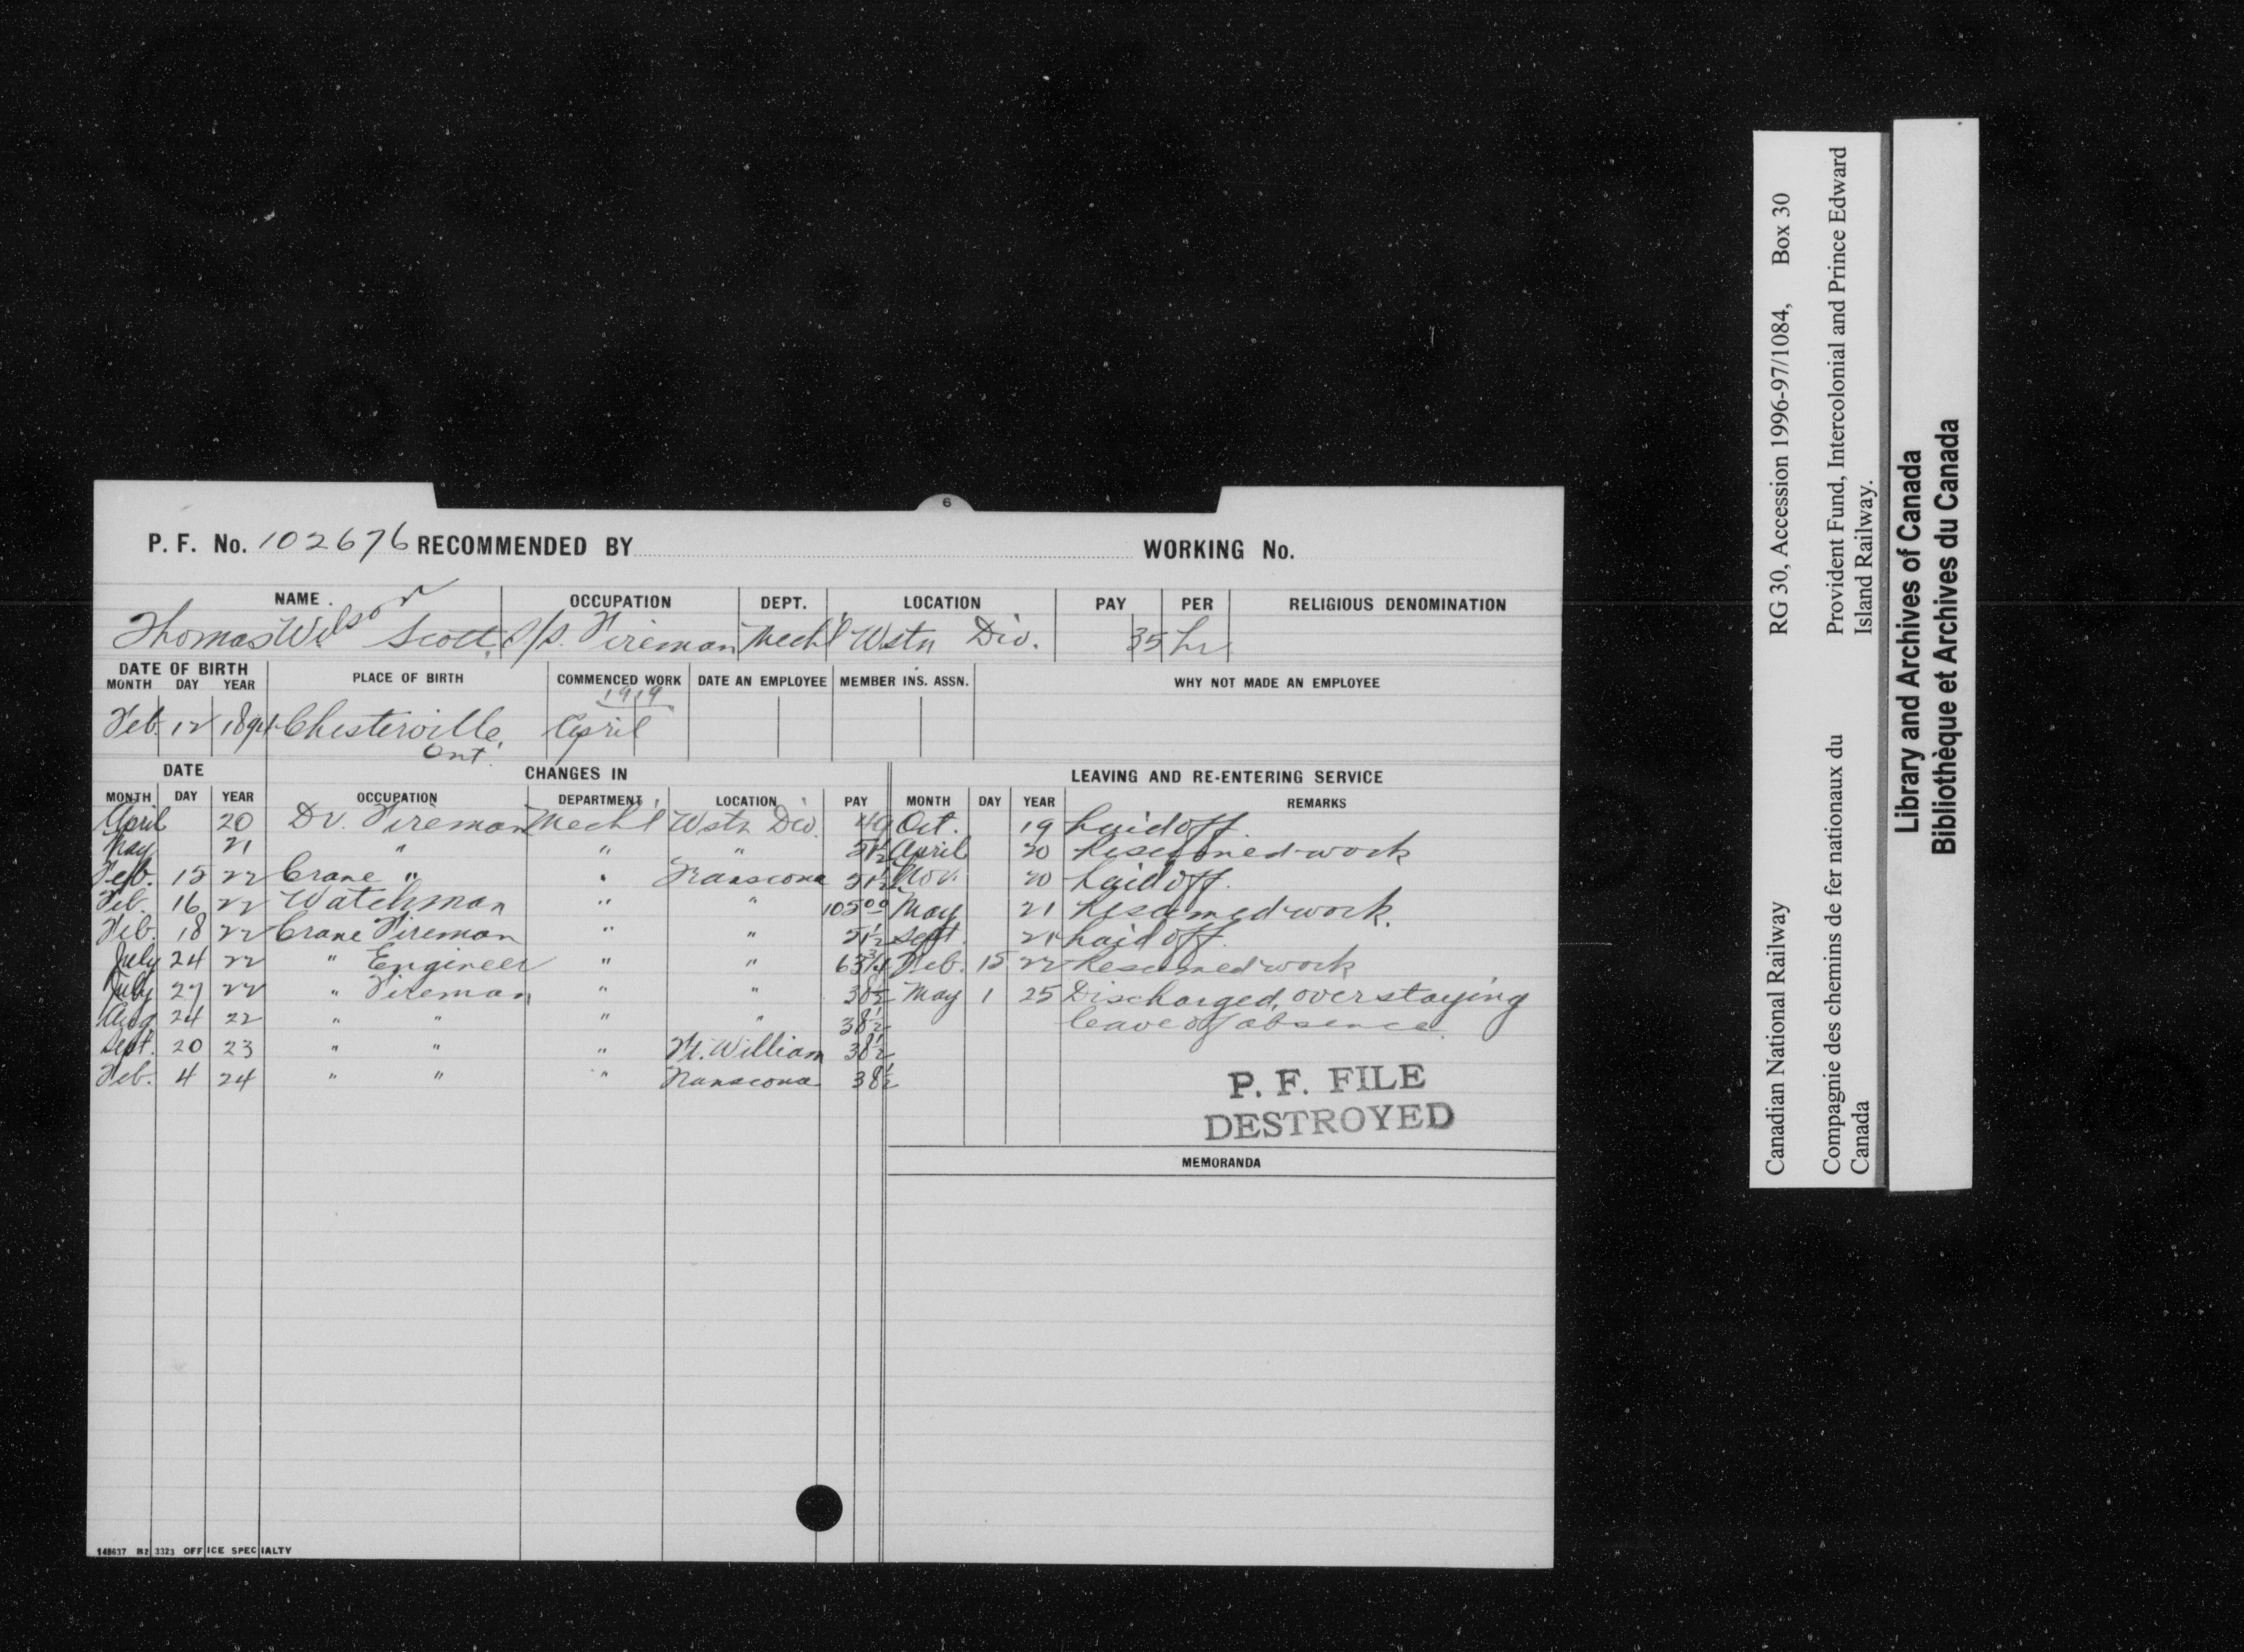 6
P. F. No. 102676 RECOMMENDED BY WORKING No.
NAME OCCUPATION DEPT. LOCATION PAY PER RELIGIOUS DENOMINATION
Thomas Wilson Scott S/S. Fireman Mechl Wstn Div. 35 hr
DATE OF BIRTH PLACE OF BIRTH COMMENCED WORK DATE AN EMPLOYEE MEMBER INS. ASSN. WHY NOT MADE AN EMPLOYEE
MONTH DAY YEAR
1919
Feb. 12 1894 Chesterville, April
Ont.
DATE CHANGES IN LEAVING AND RE-ENTERING SERVICE
MONTH DAY YEAR OCCUPATION DEPARTMENT LOCATION PAY MONTH DAY YEAR REMARKS
April 20 Dv. Fireman Mechl Wstn Div. 49 Oct. 19 Laid off.
May 21 " " " 51½ April 20 Resumed work
Feb. 15 22 Crane " " Transcona 51½ Nov. 20 Laid off.
Feb. 16 22 Watchman " " 10500 May 21 Resumed work.
Feb. 18 22 Crane Fireman " " 51½ Sept. 21 Laid off.
July 24 22 " Engineer " " 63¾ Feb. 15 22 Resumed work
July 27 22 " Fireman " " 38½ May 1 25 Discharged, overstaying
Aug. 24 22 " " " " 38½ leave of absence.
Sept. 20 23 " " " Ft. William 38½
Feb. 4 24 " " " Transcona 38½
P. F. FILE
DESTROYED
MEMORANDA
148637 B2 3323 OFFICE SPECIALTY
Canadian National Railway RG 30, Accession 1996-97/1084, Box 30
Compagnie des chemins de fer nationaux du Provident Fund, Intercolonial and Prince Edward
Canada Island Railway.
Library and Archives of Canada
Bibliothèque et Archives du Canada